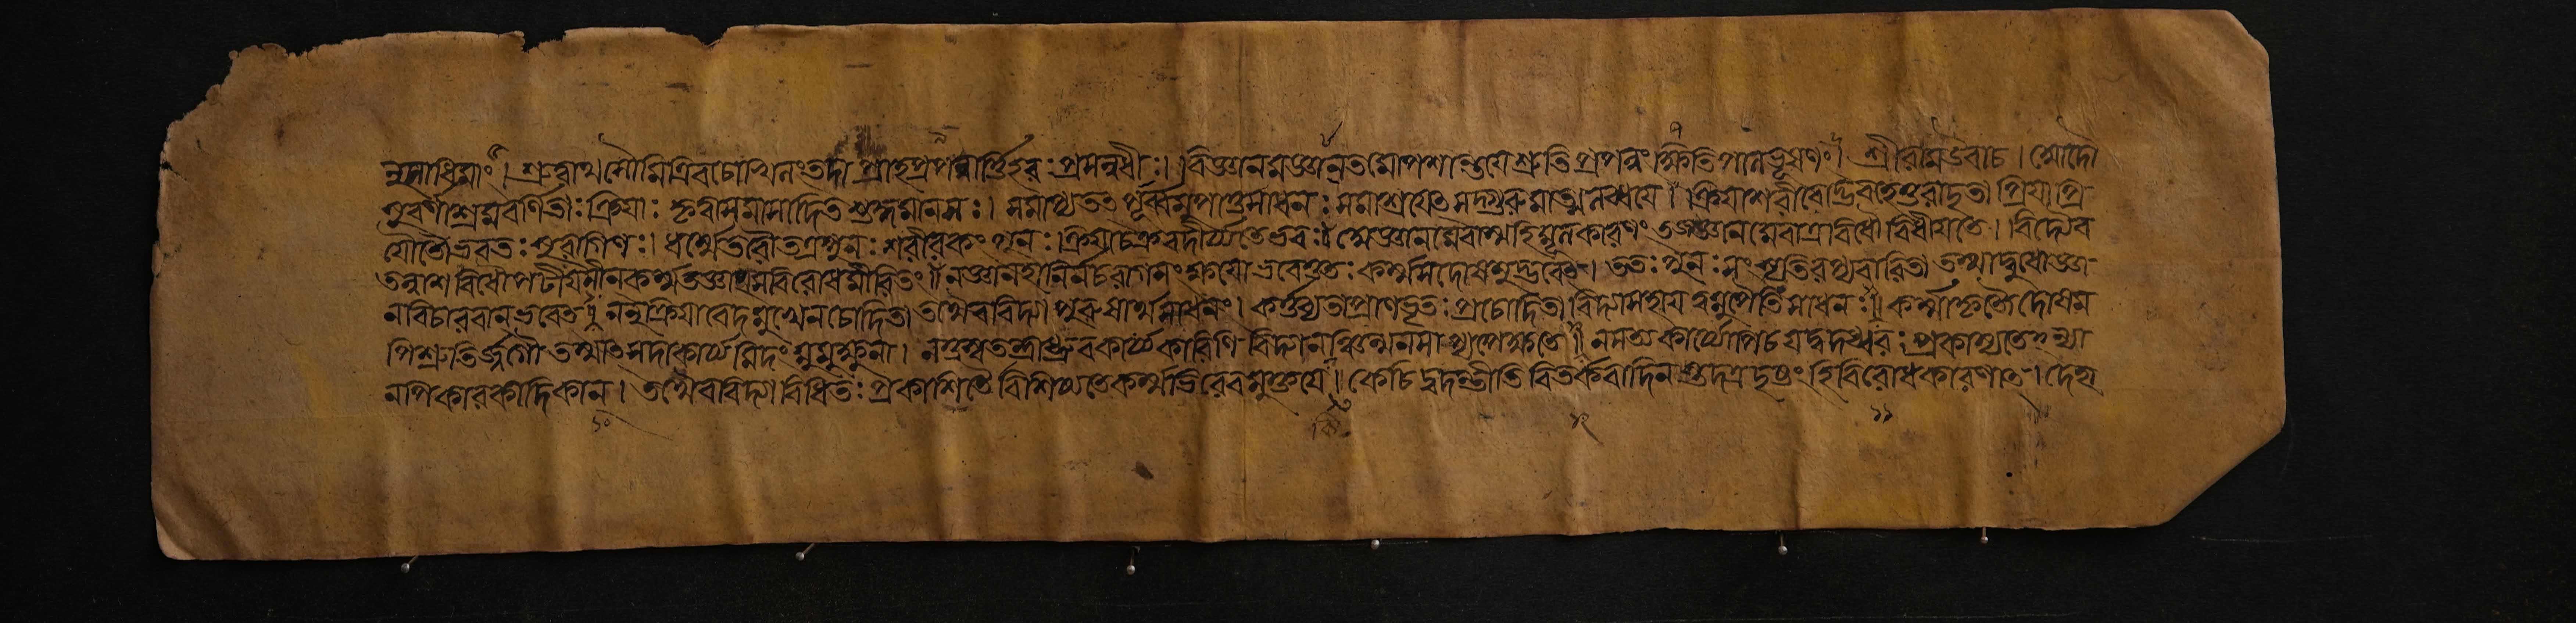 নুসাধিমাং॥ শ্রুত্বাথসৌমিত্রিবচোখিলংতদা প্রাহপ্রপন্নার্ত্তিহরঃ প্রসন্নধীঃ। বিজ্ঞানমজ্ঞানতমোপশান্তয়ে শ্রুতিপ্রপন্নং ক্ষিতিপালভূষণঃ॥ শ্রীরামউবাচ। আদৌ
স্ববর্ণাশ্রমবর্ণিতাঃ ক্রিয়াঃ কৃত্বাসমাসাদিতশুদ্ধমানসঃ। সমাপ্যতৎপূর্ব্বমুপাত্তসাধনঃ সমাশ্রয়েৎসদ্গুরুমাত্মলব্ধয়ে॥ ক্রিয়াশরীরোদ্ভবহেতুরাদৃতা প্রিয়াপ্রি
য়ৌতৌভবতঃসুরাগিণঃ। ধর্ম্মেতরৌতত্রপুনঃ শরীরকং পুনঃ ক্রিয়াচক্রবদীর্য্যতেভবঃ॥ অজ্ঞানমেবাস্যহিমূলকারণং তদ্ধানমেবাত্রবিধৌ বিধীয়তে। বিদ্যৈব
তন্নাশবিধৌপটীয়সী নকর্ম্মতজ্জংসবিরোধমীরিতং॥ নাজ্ঞানহানির্নচরাগসংক্ষয়ো ভবেত্ততঃ কর্ম্মসদোষমুদ্ভবেৎ। ততঃ পুনঃ সংসৃতিরপ্যবারিতা তস্মাদ্বুধোজ্ঞা
নবিচারবান্ ভবেৎ॥ ননুক্রিয়াবেদমুখেনচোদিতা তথৈববিদ্যা পুরুষার্থসাধনং। কর্ত্তব্যতাপ্রাণভৃতঃ প্রচোদিতা বিদ্যাসহায়ত্বমুপৈতি সাধনঃ॥ কর্ম্মাকৃতৌদোষম
পিশ্রুতির্জ্জগৌ তস্মাৎসদাকার্য্যমিদং মুমুক্ষুণা। ননুস্বতন্ত্রাধ্রুবকার্য্যকারিণী বিদ্যানকিঞ্চিন্মনসাপ্যপেক্ষতে॥ নসত্যকার্য্যোপিচয়দ্বদধ্বরঃ প্রকাঙ্ক্ষতেন্যা
নপিকারকাদিকান্। তথৈববিদ্যা বিধিতঃ প্রকাশিতৈ র্বিশিষ্যতেকর্ম্মভিরেবমুক্তয়ে॥ কেচিদ্বদন্তীতি বিতর্কবাদিন স্তদপ্রদৃষ্টংহিবিরোধকারণাৎ। দেহা
১০ ১২ ১১